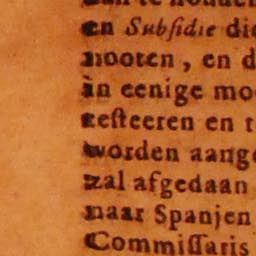 en Subſidie die
nooten, en d
in eenige mo
reſteeren en t
worden aange
zal afgedaan
naar Spanjen
Commiſſaris